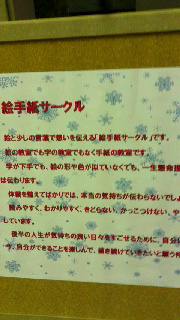 絵手紙サークル
絵と少しの言葉で想いを伝える「絵手紙サークル」です。
絵の教室でも字の教室でもなく手紙の教室です。
字が下手でも、絵の形や色が似ていなくても、一生懸命描
は伝わります。
体裁を整えてばかりでは、本当の気持ちが伝わらないでしょ
読みやすく、わかりやすく、きどらない、かっこつけない、や
しています。
後半の人生が気持ちの良い日々をすごせるために、自分に
今、自分ができることを楽しんで、描き続けていきたいと願う仲